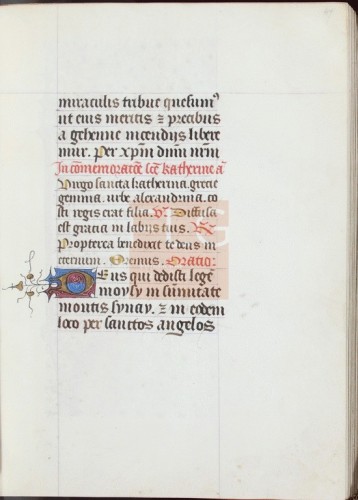 miraculis tribue quesumꝰ
ut eius meritis ⁊ precibus
a gehenne incendijs libere
mur. Per xp̄m dn̄m nr̄m
In cōmemoratōe sc̄e katherine a͞
Virgo sancta katherina. grecie
gemma. urbe alexandrina. co
sti regis erat filia. V̷. Diffusa
est gracia in labijs tuis. R̷
Propterea benedixit te deus in
eternum. Oremus. Oratio.
Deus qui dedisti legē
moysy in sūmitate
montis synay. ⁊ in eodem
loco per sanctos angelos